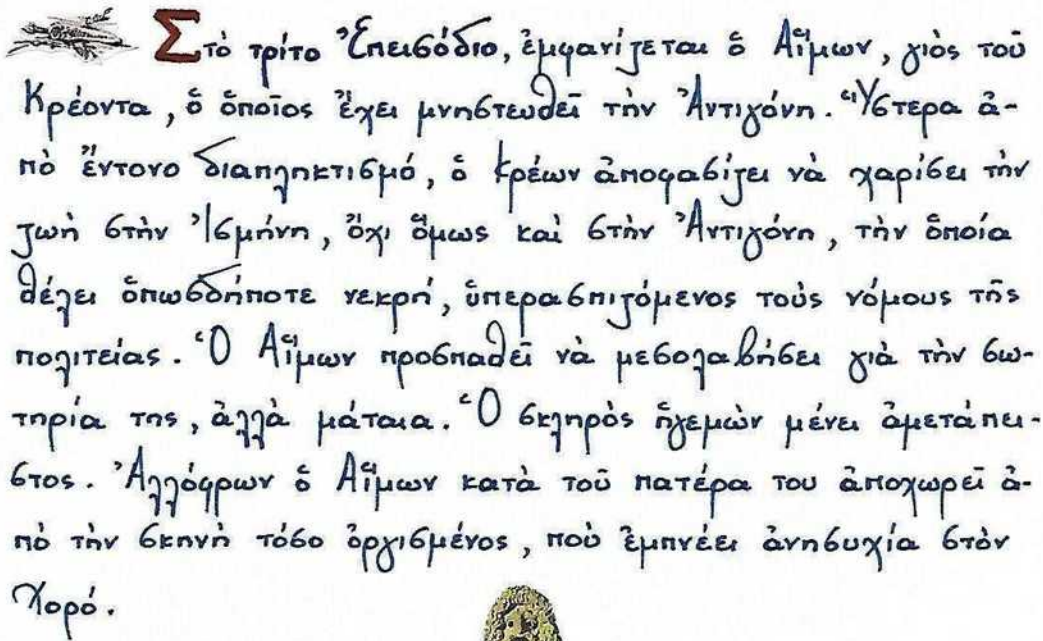 Στὸ τρίτο Ἐπεισόδιο, ἐμφανίζεται ὁ Αἵμων, γιὸς τοῦ
Κρέοντα, ὁ ὁποῖος ἔχει μνηστευθεῖ τὴν Ἀντιγόνη. Ὕστερα ἀ-
πὸ ἔντονο διαπληκτισμό, ὁ Κρέων ἀποφασίζει νὰ χαρίσει τὴν
ζωὴ στὴν Ἰσμήνη, ὄχι ὅμως καὶ στὴν Ἀντιγόνη, τὴν ὁποία
θέλει ὁπωσδήποτε νεκρή, ὑπερασπιζόμενος τοὺς νόμους τῆς
πολιτείας. Ὁ Αἵμων προσπαθεῖ νὰ μεσολαβήσει γιὰ τὴν σω-
τηρία της, ἀλλὰ μάταια. Ὁ σκληρὸς ἡγεμὼν μένει ἀμετάπει-
στος. Ἀλλόφρων ὁ Αἵμων κατὰ τοῦ πατέρα του ἀποχωρεῖ ἀ-
πὸ τὴν σκηνὴ τόσο ὀργισμένος, ποὺ ἐμπνέει ἀνησυχία στὸν
Χορό.